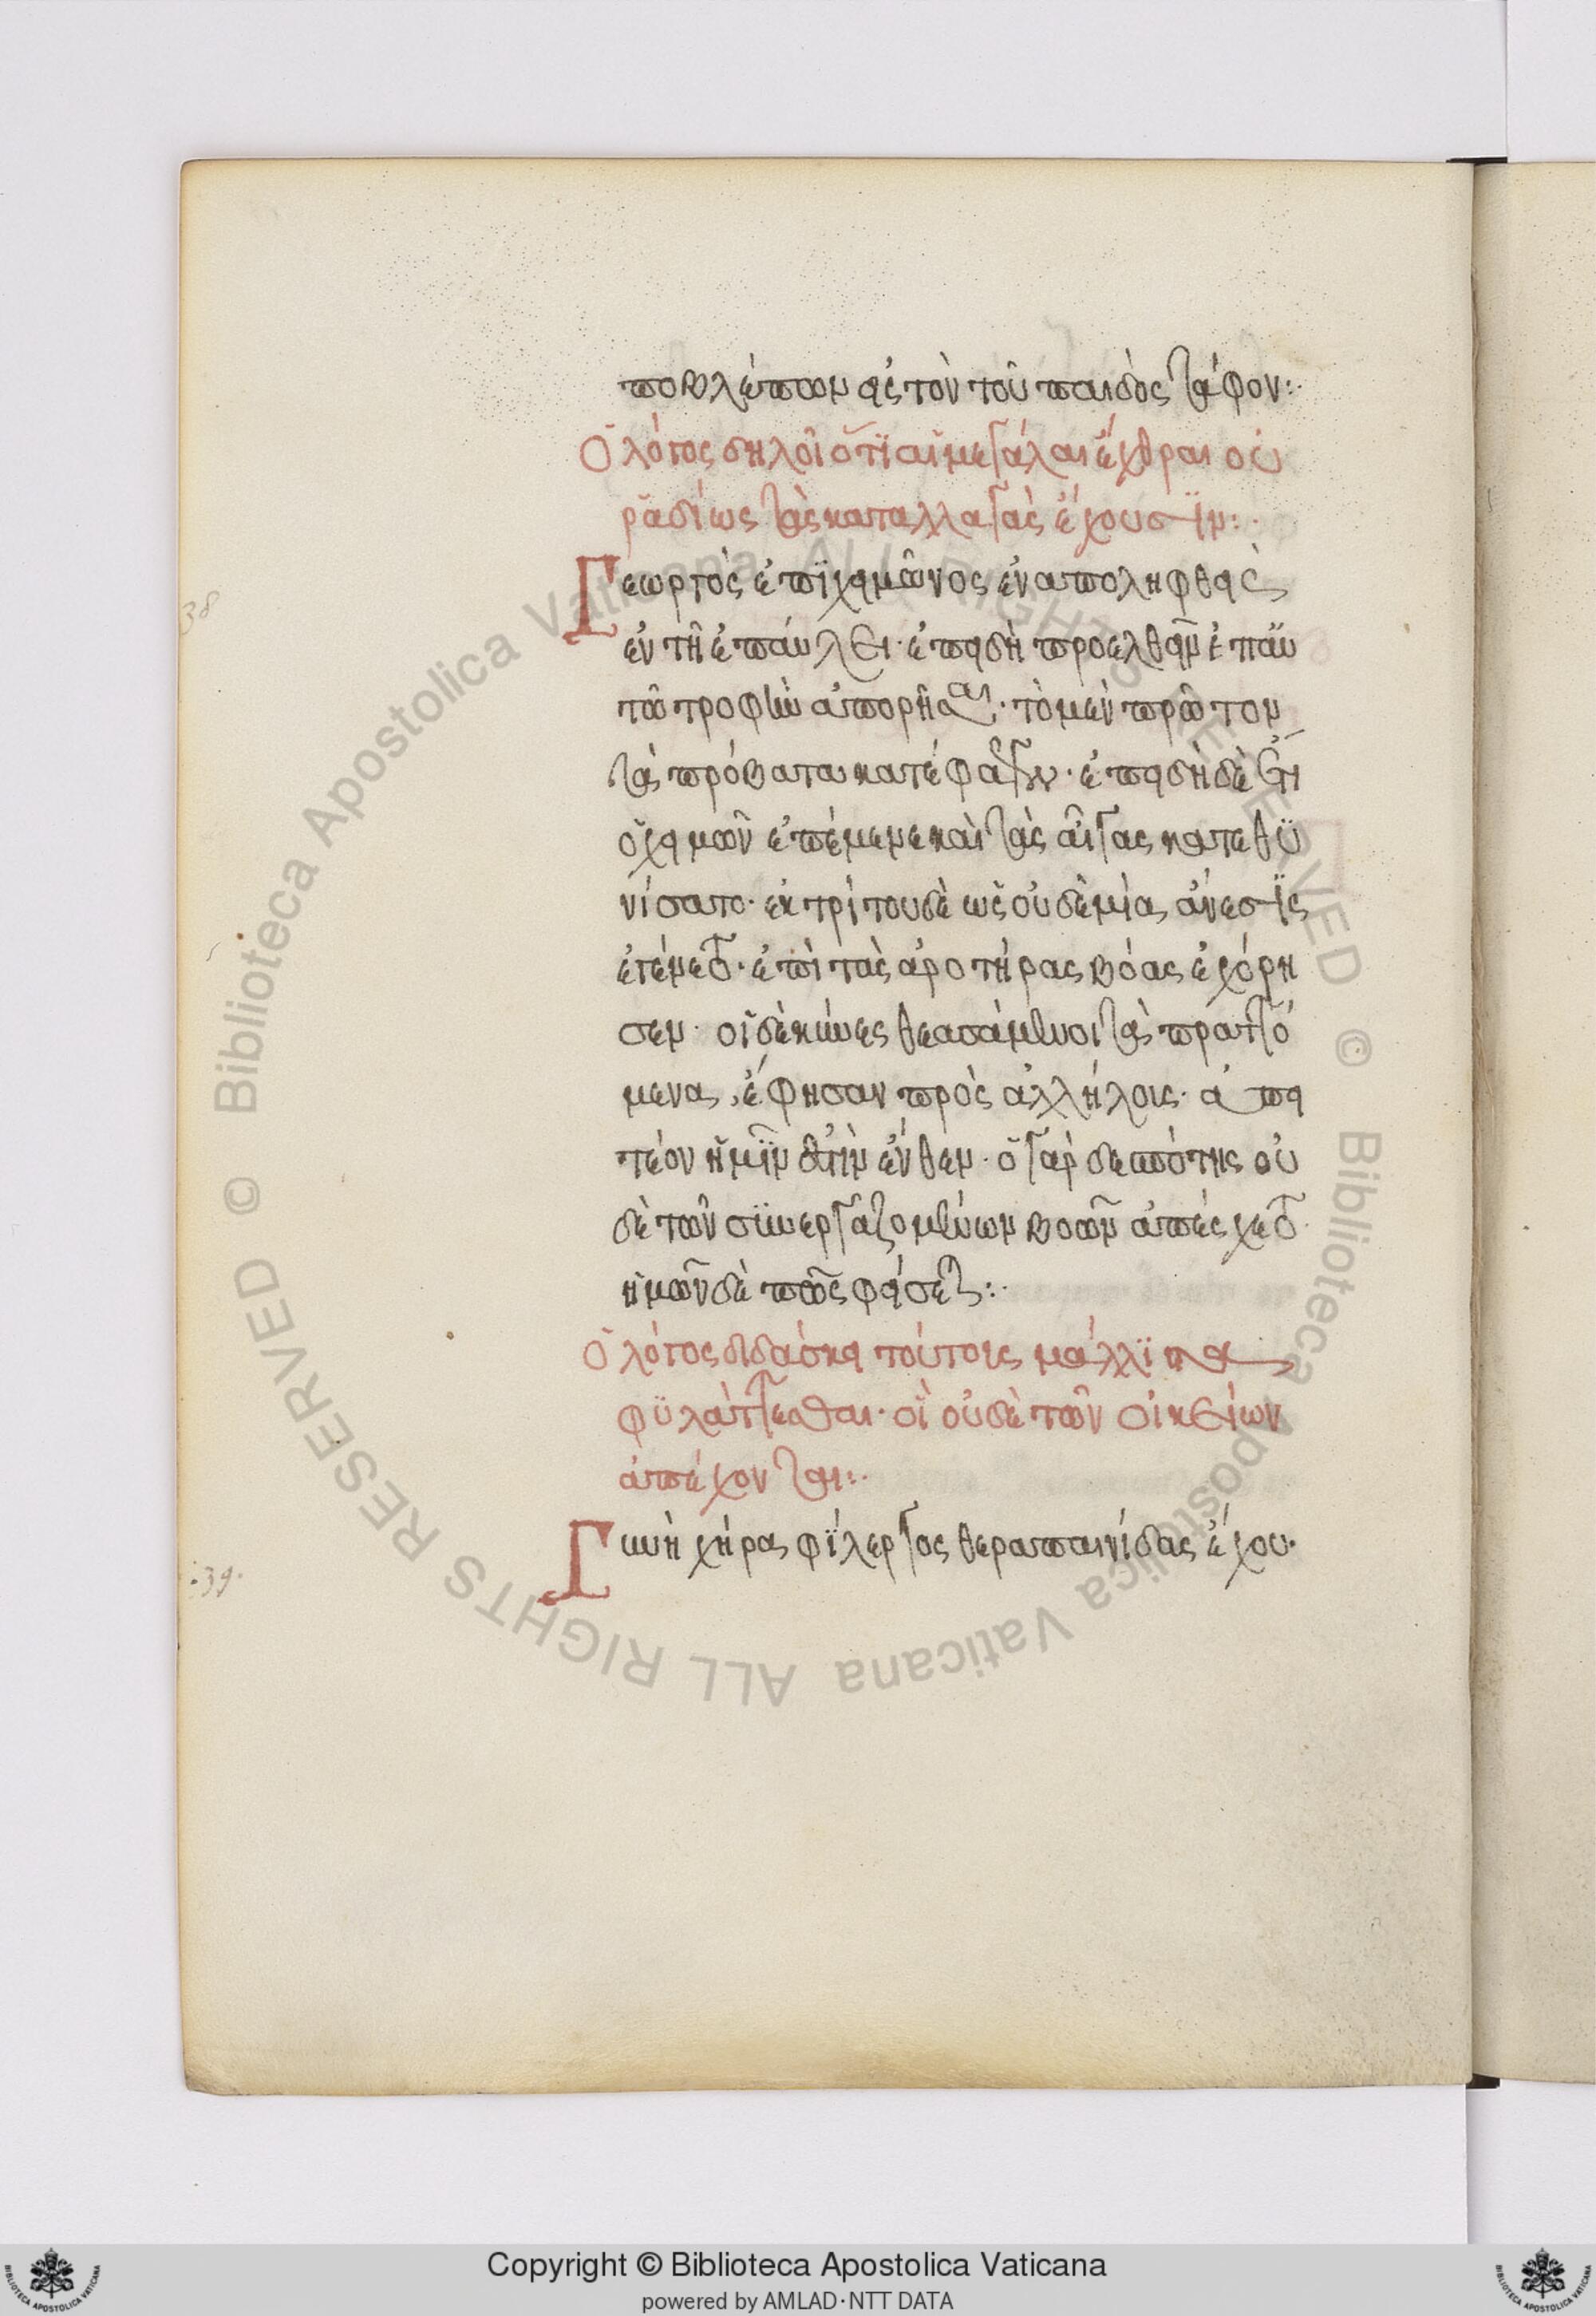 ποβλέπων εἰς τὸν τοῦ παιδὸς τάφον:·
Ὁ λόγος δηλοῖ ὅτι αἱ μεγάλαι ἔχθραι οὐ
ῥαδίως τὰς καταλλαγὰς ἔχουσιν:·
38
Γεωργὸς ἐπὶ χειμῶνος ἐναποληφθεὶς
ἐν τῇ ἐπαύλει· ἐπειδὴ προελθεῖν ἐπ' αὐ
τῶ τροφὴν ἀπορῆσαι· τὸ μὲν πρῶτον
τὰ πρόβατα κατέφαγεν· ἐπειδὴ δὲ ἔτι
ὁ χειμὼν ἐπέμενε καὶ τὰς αἶγας κατεθοι
νίσατο· ἐκ τρίτου δὲ ὡς οὐδὲ μία ἄνεσις
ἐγένετο· ἐπὶ τὰς ἀροτήρας βόας ἐχόρη
σεν· οἱ δὲ κύνες θεασάμενοι τὰ πραττό
μενα, ἔφησαν πρὸς ἀλλήλοις· ἀπι
τέον ἡμῖν ἐστὶν ἔνθεν· ὁ γὰρ δεσπότης οὐ
δὲ τῶν συνεργαζομένων βοῶν ἀπέσχετο·
ἡμῶν δὲ πῶς φείσεται:·
Ὁ λόγος διδάσκει τούτοις μάλλιστα
φυλάττεσθαι· οἳ οὐδὲ τῶν οἰκείων
ἀπέχονται:·
:39·
Γυνὴ χήρα φίλεργος θεραπαινίδας ἔχου·
© Biblioteca Apostolica Vaticana ALL RIGHTS RESERVED © Biblioteca Apostolica Vaticana ALL RIGHTS RESERVED
Copyright © Biblioteca Apostolica Vaticana
powered by AMLAD·NTT DATA
BIBLIOTECA APOSTOLICA VATICANA
BIBLIOTECA APOSTOLICA VATICANA